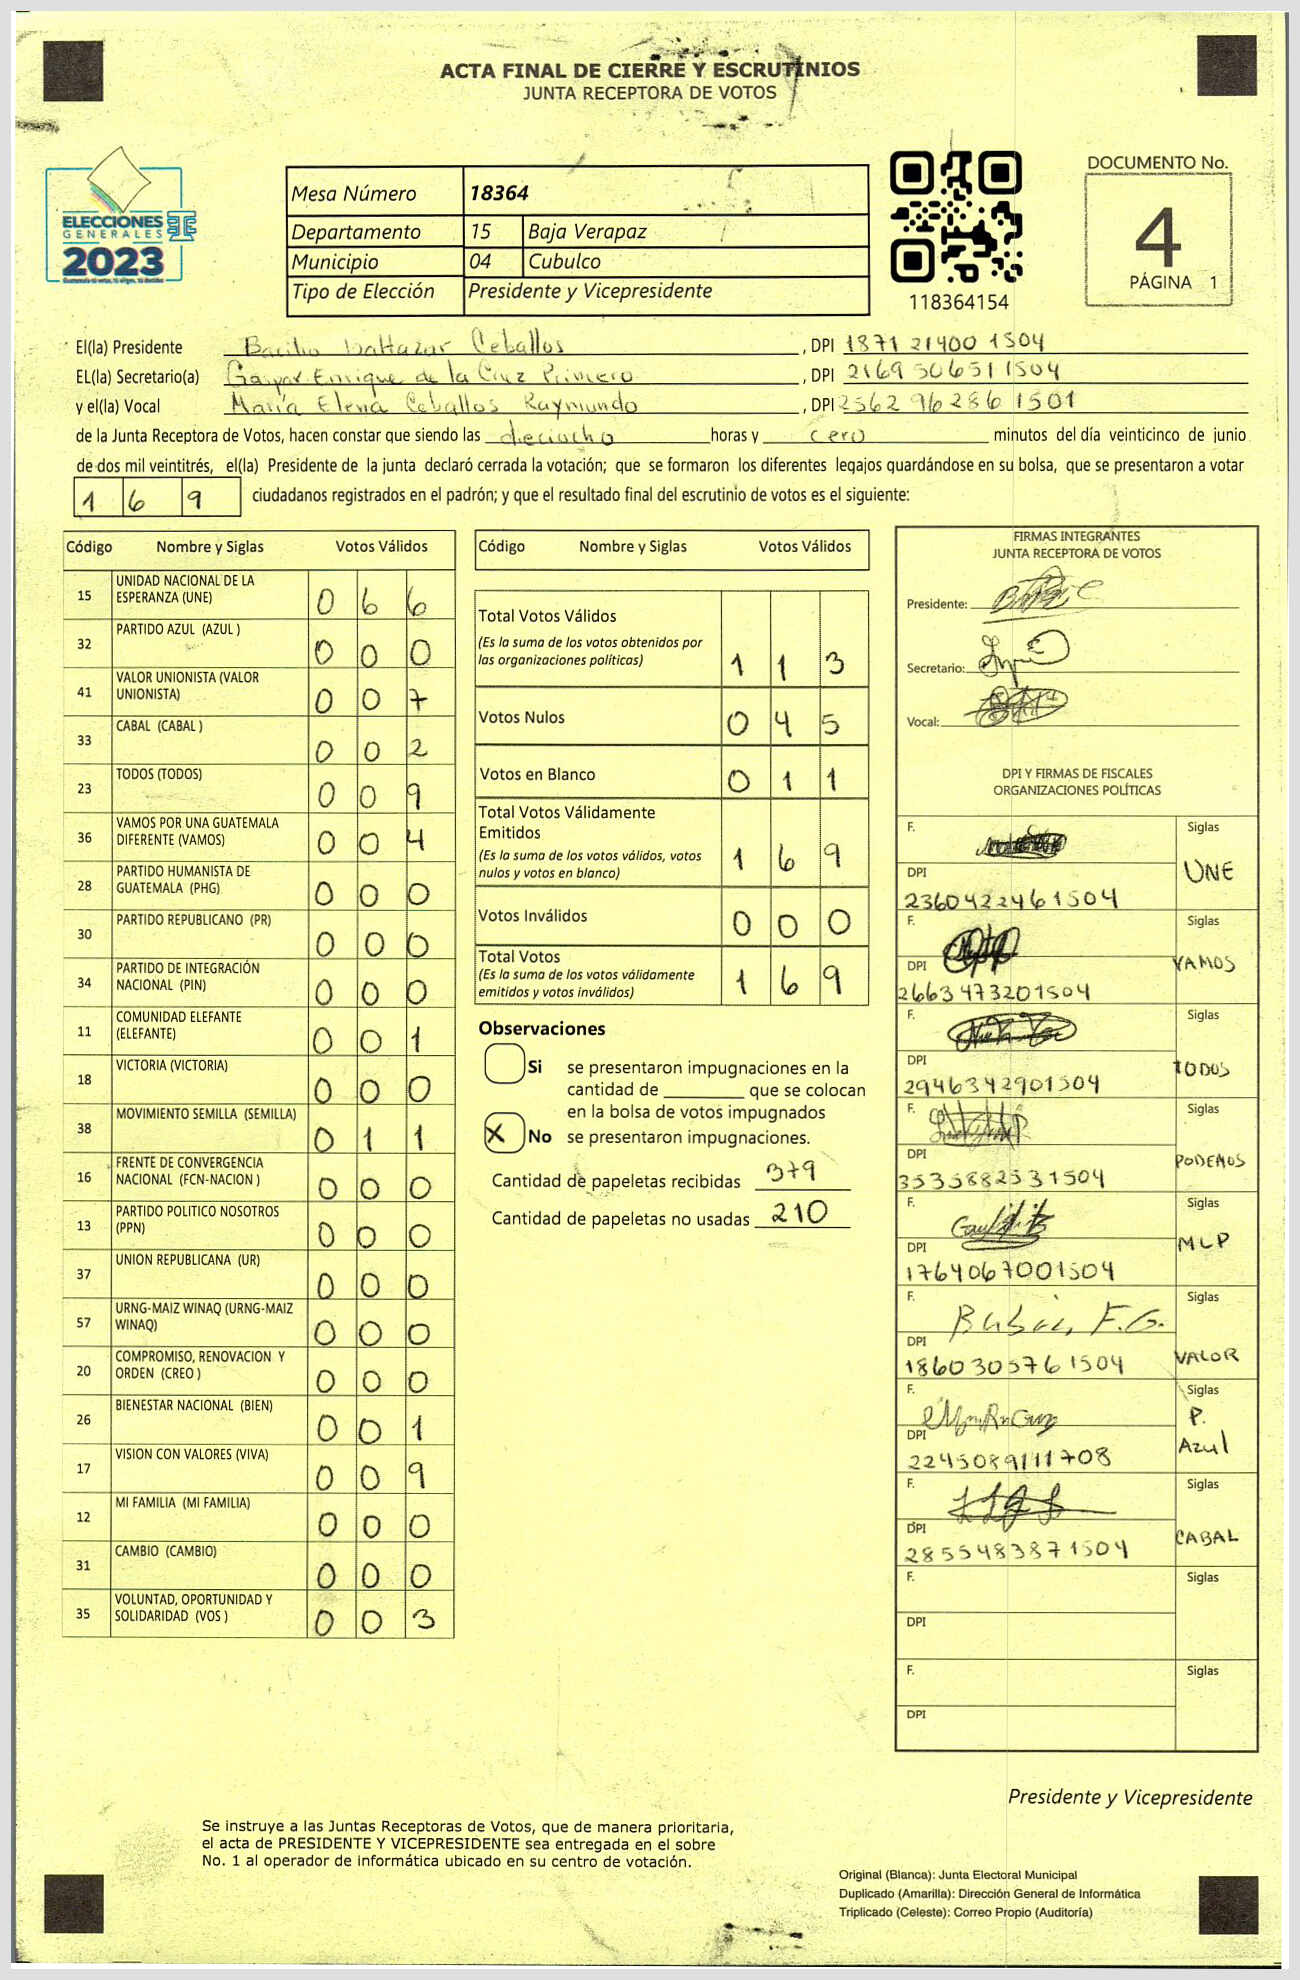 ACTA FINAL DE CIERRE Y ESCRUTINIOS
JUNTA RECEPTORA DE VOTOS
ELECCIONES
GENERALES
2023
Mesa Número 18364
Departamento 15 Baja Verapaz
Municipio 04 Cubulco
Tipo de Elección Presidente y Vicepresidente
118364154
DOCUMENTO No.
4
PÁGINA 1
El(la) Presidente Bacilio Baltazar Ceballos, DPI 1871 21400 1504
EL(la) Secretario(a) Gaspar Enrique de la Cruz Primero, DPI 2169 50651 1504
y el(la) Vocal María Elena Ceballos Raymundo, DPI 2562 96286 1501
de la Junta Receptora de Votos, hacen constar que siendo las dieciocho horas y cero minutos del día veinticinco de junio
de dos mil veintitrés, el(la) Presidente de la junta declaró cerrada la votación; que se formaron los diferentes legajos guardándose en su bolsa, que se presentaron a votar
169 ciudadanos registrados en el padrón; y que el resultado final del escrutinio de votos es el siguiente:
Código Nombre y Siglas Votos Válidos
15 UNIDAD NACIONAL DE LA ESPERANZA (UNE) 0 6 6
32 PARTIDO AZUL (AZUL ) 0 0 0
41 VALOR UNIONISTA (VALOR UNIONISTA) 0 0 7
33 CABAL (CABAL ) 0 0 2
23 TODOS (TODOS) 0 0 9
36 VAMOS POR UNA GUATEMALA DIFERENTE (VAMOS) 0 0 4
28 PARTIDO HUMANISTA DE GUATEMALA (PHG) 0 0 0
30 PARTIDO REPUBLICANO (PR) 0 0 0
34 PARTIDO DE INTEGRACIÓN NACIONAL (PIN) 0 0 0
11 COMUNIDAD ELEFANTE (ELEFANTE) 0 0 1
18 VICTORIA (VICTORIA) 0 0 0
38 MOVIMIENTO SEMILLA (SEMILLA) 0 1 1
16 FRENTE DE CONVERGENCIA NACIONAL (FCN-NACION ) 0 0 0
13 PARTIDO POLITICO NOSOTROS (PPN) 0 0 0
37 UNION REPUBLICANA (UR) 0 0 0
57 URNG-MAIZ WINAQ (URNG-MAIZ WINAQ) 0 0 0
20 COMPROMISO, RENOVACION Y ORDEN (CREO ) 0 0 0
26 BIENESTAR NACIONAL (BIEN) 0 0 1
17 VISION CON VALORES (VIVA) 0 0 9
12 MI FAMILIA (MI FAMILIA) 0 0 0
31 CAMBIO (CAMBIO) 0 0 0
35 VOLUNTAD, OPORTUNIDAD Y SOLIDARIDAD (VOS ) 0 0 3
Código Nombre y Siglas Votos Válidos
Total Votos Válidos
(Es la suma de los votos obtenidos por
las organizaciones políticas) 1 1 3
Votos Nulos 0 4 5
Votos en Blanco 0 1 1
Total Votos Válidamente
Emitidos
(Es la suma de los votos válidos, votos
nulos y votos en blanco) 1 6 9
Votos Inválidos 0 0 0
Total Votos
(Es la suma de los votos válidamente
emitidos y votos inválidos) 1 6 9
Observaciones
Si se presentaron impugnaciones en la
cantidad de ________ que se colocan
en la bolsa de votos impugnados
X No se presentaron impugnaciones.
Cantidad de papeletas recibidas 379
Cantidad de papeletas no usadas 210
FIRMAS INTEGRANTES
JUNTA RECEPTORA DE VOTOS
Presidente:
Secretario:
Vocal:
DPI Y FIRMAS DE FISCALES
ORGANIZACIONES POLÍTICAS
F. Siglas
UNE
DPI
2360422461504
F. Siglas
VAMOS
DPI
2663473201504
F. Siglas
TODOS
DPI
2946342901504
F. Siglas
PODEMOS
DPI
3535882531504
F. Siglas
MLP
DPI
1764067001504
F. Siglas
VALOR
DPI
1860305761504
F. Siglas
P. Azul
DPI
2245089111708
F. Siglas
CABAL
DPI
2855483871504
F. Siglas
DPI
F. Siglas
DPI
Presidente y Vicepresidente
Se instruye a las Juntas Receptoras de Votos, que de manera prioritaria,
el acta de PRESIDENTE Y VICEPRESIDENTE sea entregada en el sobre
No. 1 al operador de informática ubicado en su centro de votación.
Original (Blanca): Junta Electoral Municipal
Duplicado (Amarilla): Dirección General de Informática
Triplicado (Celeste): Correo Propio (Auditoría)